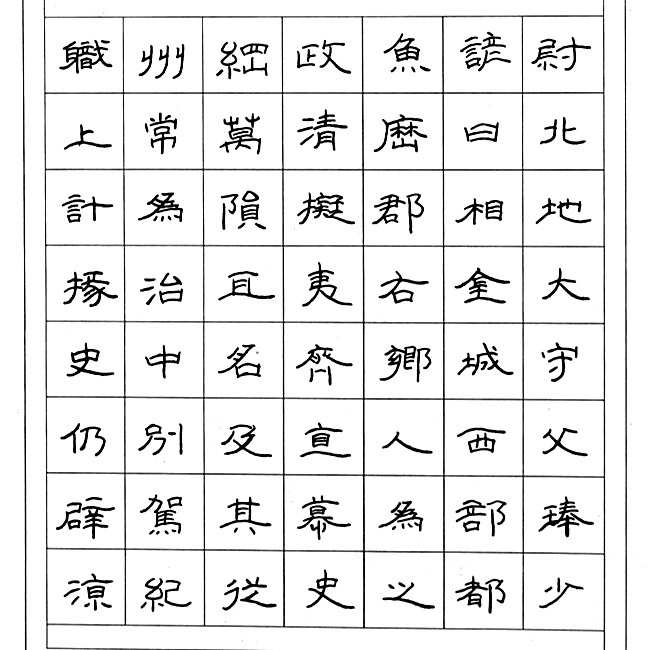 尉北地大守父琫少
諺曰相金城西部都
魚歷郡右鄉人為之
政清擬夷齊直慕史
綱萬隕且名及其從
州常為治中別駕紀
職上計掾史仍辟涼